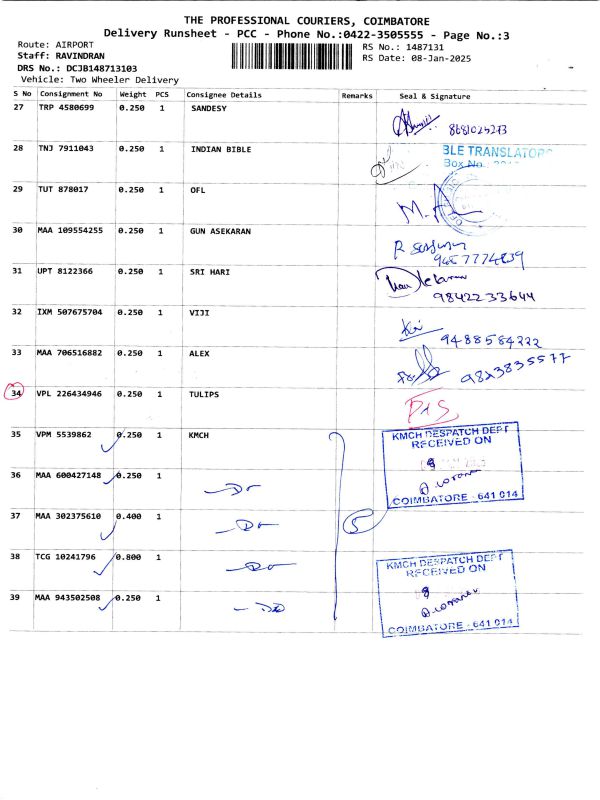 THE PROFESSIONAL COURIERS, COIMBATORE
Delivery Runsheet - PCC - Phone No.:0422-3505555 - Page No.:3
Route: AIRPORT
RS No.: 1487131
Staff: RAVINDRAN
RS Date: 08-Jan-2025
DRS No.: DCJB148713103
Vehicle: Two Wheeler Delivery
S No Consignment No Weight PCS Consignee Details Remarks Seal & Signature
27 TRP 4580699 0.250 1 SANDESY
8681025273
28 TNJ 7911043 0.250 1 INDIAN BIBLE BLE TRANSLATORS
Box No.
29 TUT 878017 0.250 1 OFL
30 MAA 109554255 0.250 1 GUN ASEKARAN
31 UPT 8122366 0.250 1 SRI HARI
9842233644
32 IXM 507675704 0.250 1 VIJI
9488584222
33 MAA 706516882 0.250 1 ALEX
9823835577
34 VPL 226434946 0.250 1 TULIPS
35 VPM 5539862 0.250 1 KMCH
KMCH DESPATCH DEPT
RECEIVED ON
36 MAA 600427148 0.250 1 Do
COIMBATORE - 641 014
37 MAA 302375610 0.400 1 Do 5
38 TCG 10241796 0.800 1 Do
KMCH DESPATCH DEPT
RECEIVED ON
39 MAA 943502508 0.250 1 Do
COIMBATORE - 641 014